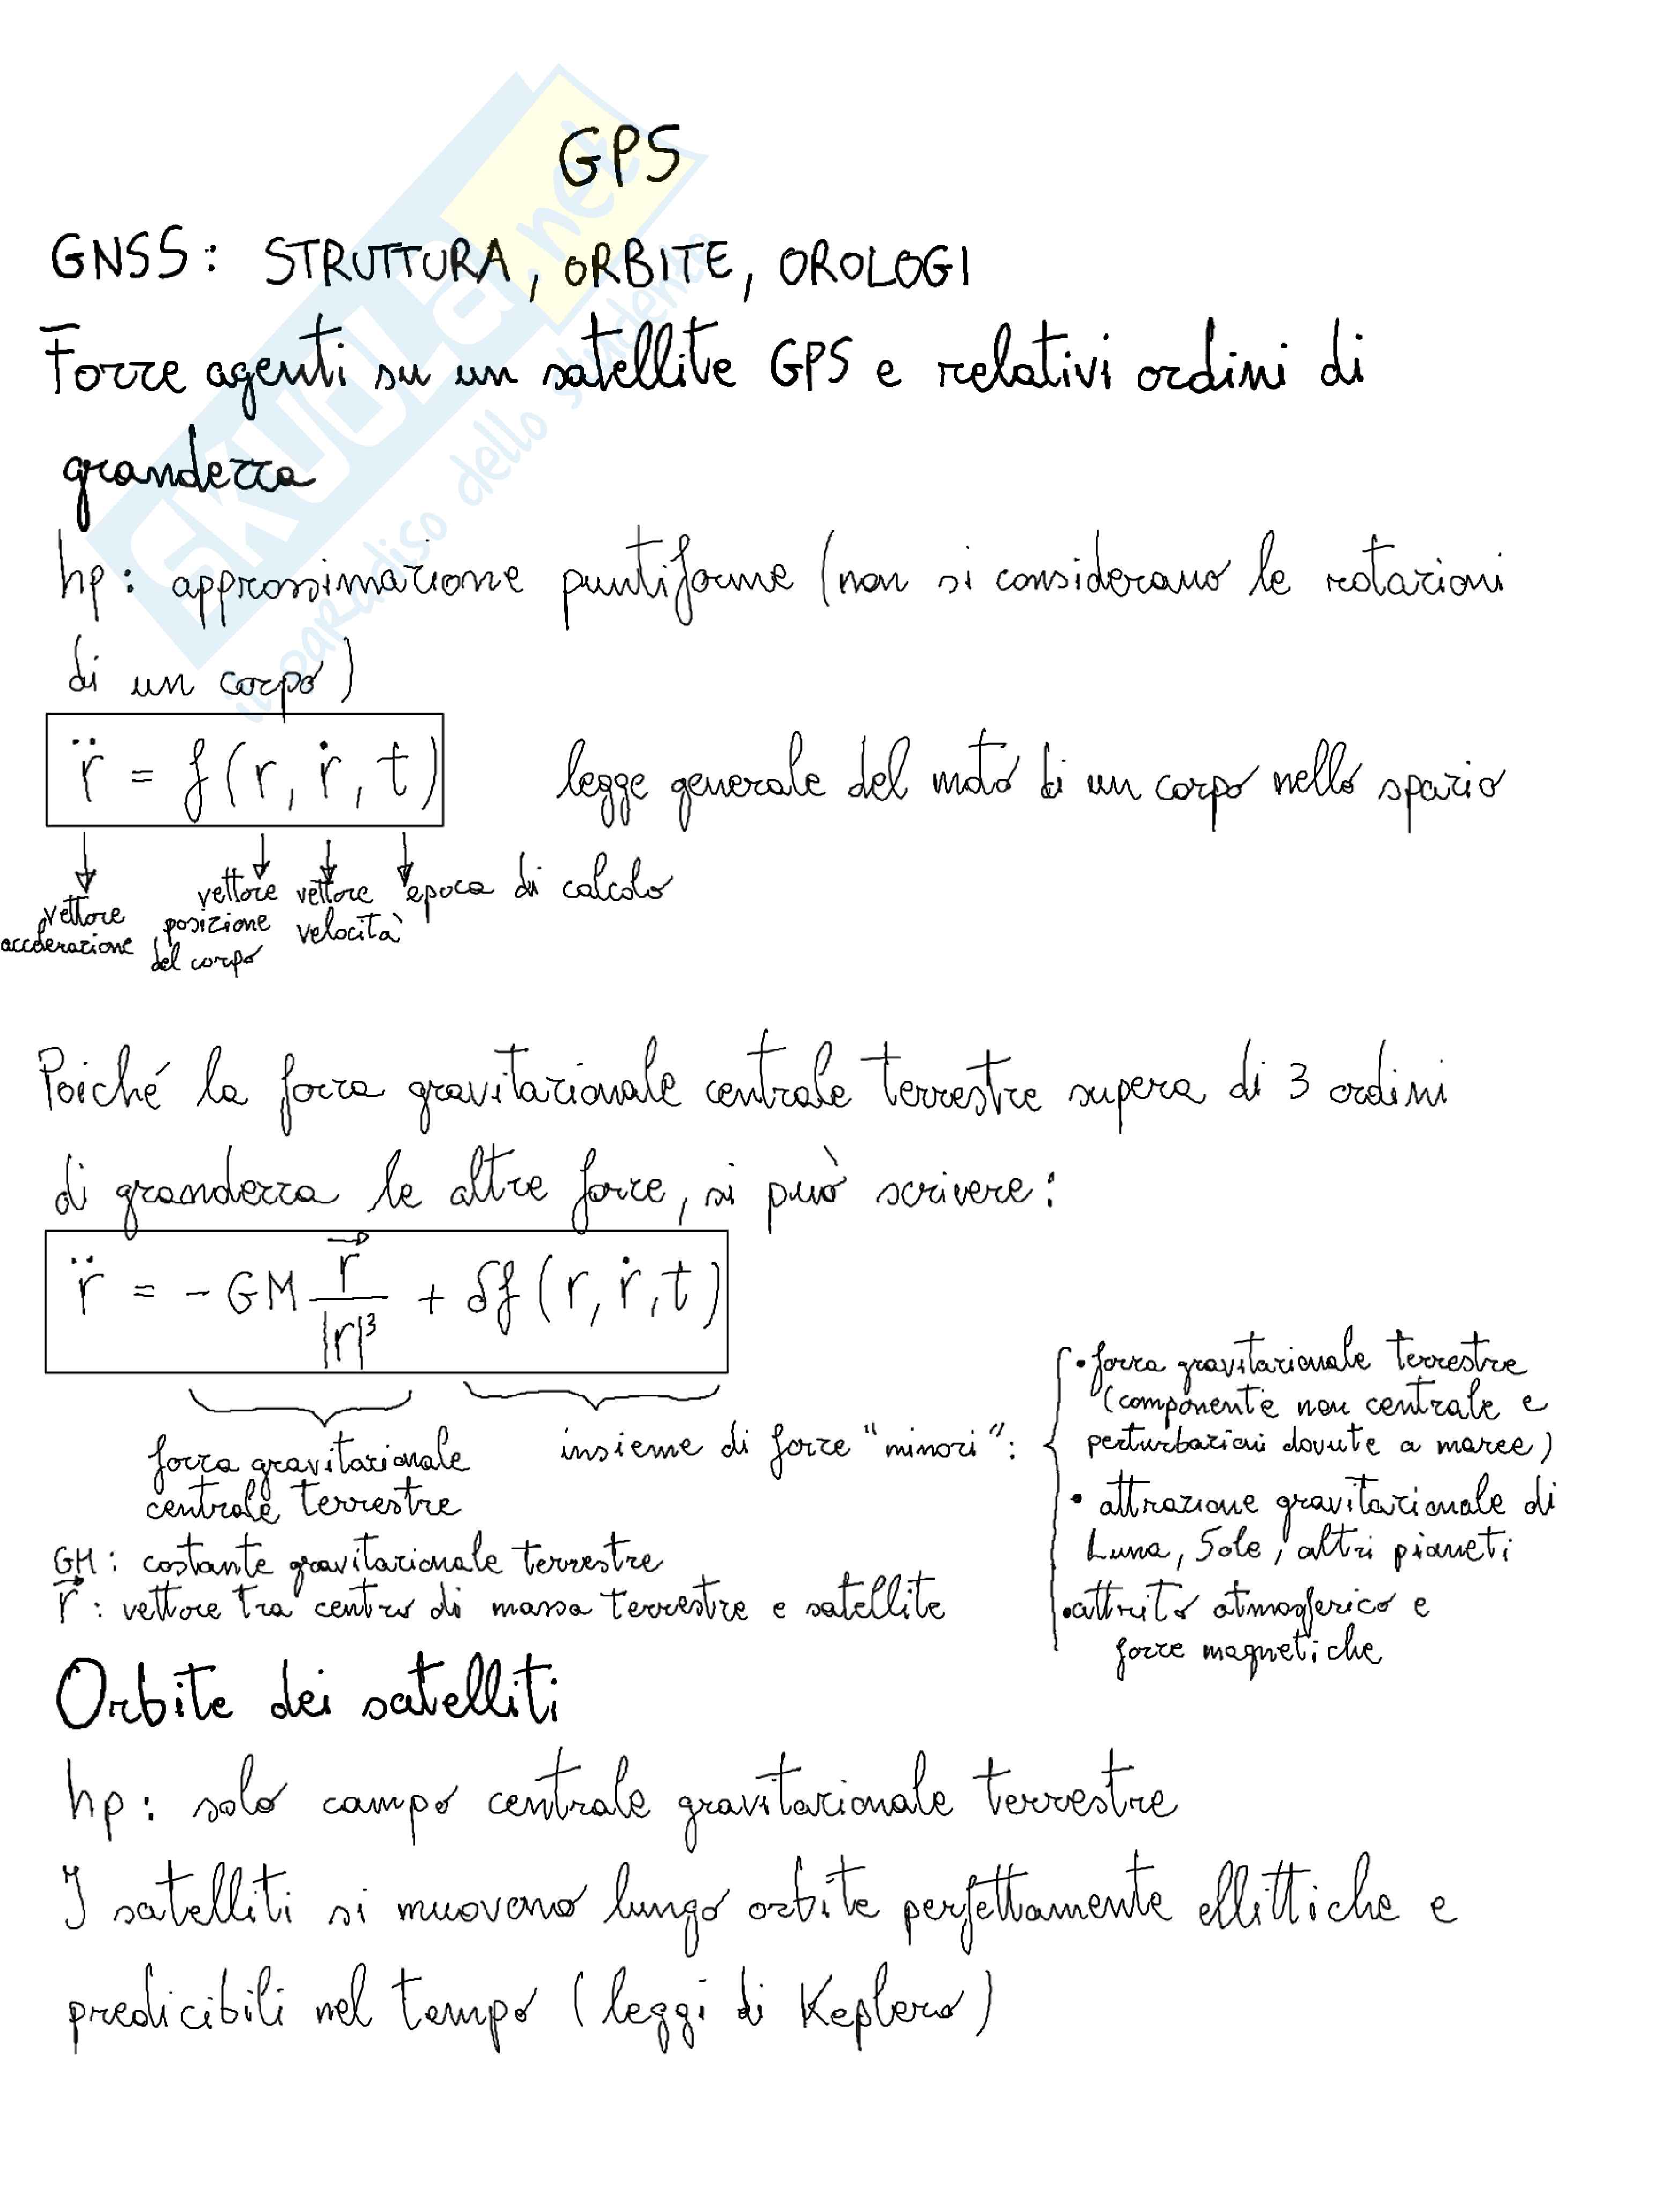 GPS
GNSS: STRUTTURA, ORBITE, OROLOGI
Forze agenti su un satellite GPS e relativi ordini di
grandezza
hp: approssimazione puntiforme (non si considerano le rotazioni
di un corpo)
r̈ = f(r, ṙ, t)
legge generale del moto di un corpo nello spazio
vettore accelerazione
vettore posizione del corpo
vettore velocità
epoca di calcolo
Poiché la forza gravitazionale centrale terrestre supera di 3 ordini
di grandezza le altre forze, si può scrivere:
r̈ = - GM r⃗ / |r|³ + δf(r, ṙ, t)
forza gravitazionale
centrale terrestre
insieme di forze "minori":
• forza gravitazionale terrestre
(componente non centrale e
perturbazioni dovute a maree)
• attrazione gravitazionale di
Luna, Sole, altri pianeti
• attrito atmosferico e
forze magnetiche
GM: costante gravitazionale terrestre
r⃗: vettore tra centro di massa terrestre e satellite
Orbite dei satelliti
hp: solo campo centrale gravitazionale terrestre
I satelliti si muovono lungo orbite perfettamente ellittiche e
predicibili nel tempo (leggi di Keplero)
SKUOLA.net
il paradiso dello studente